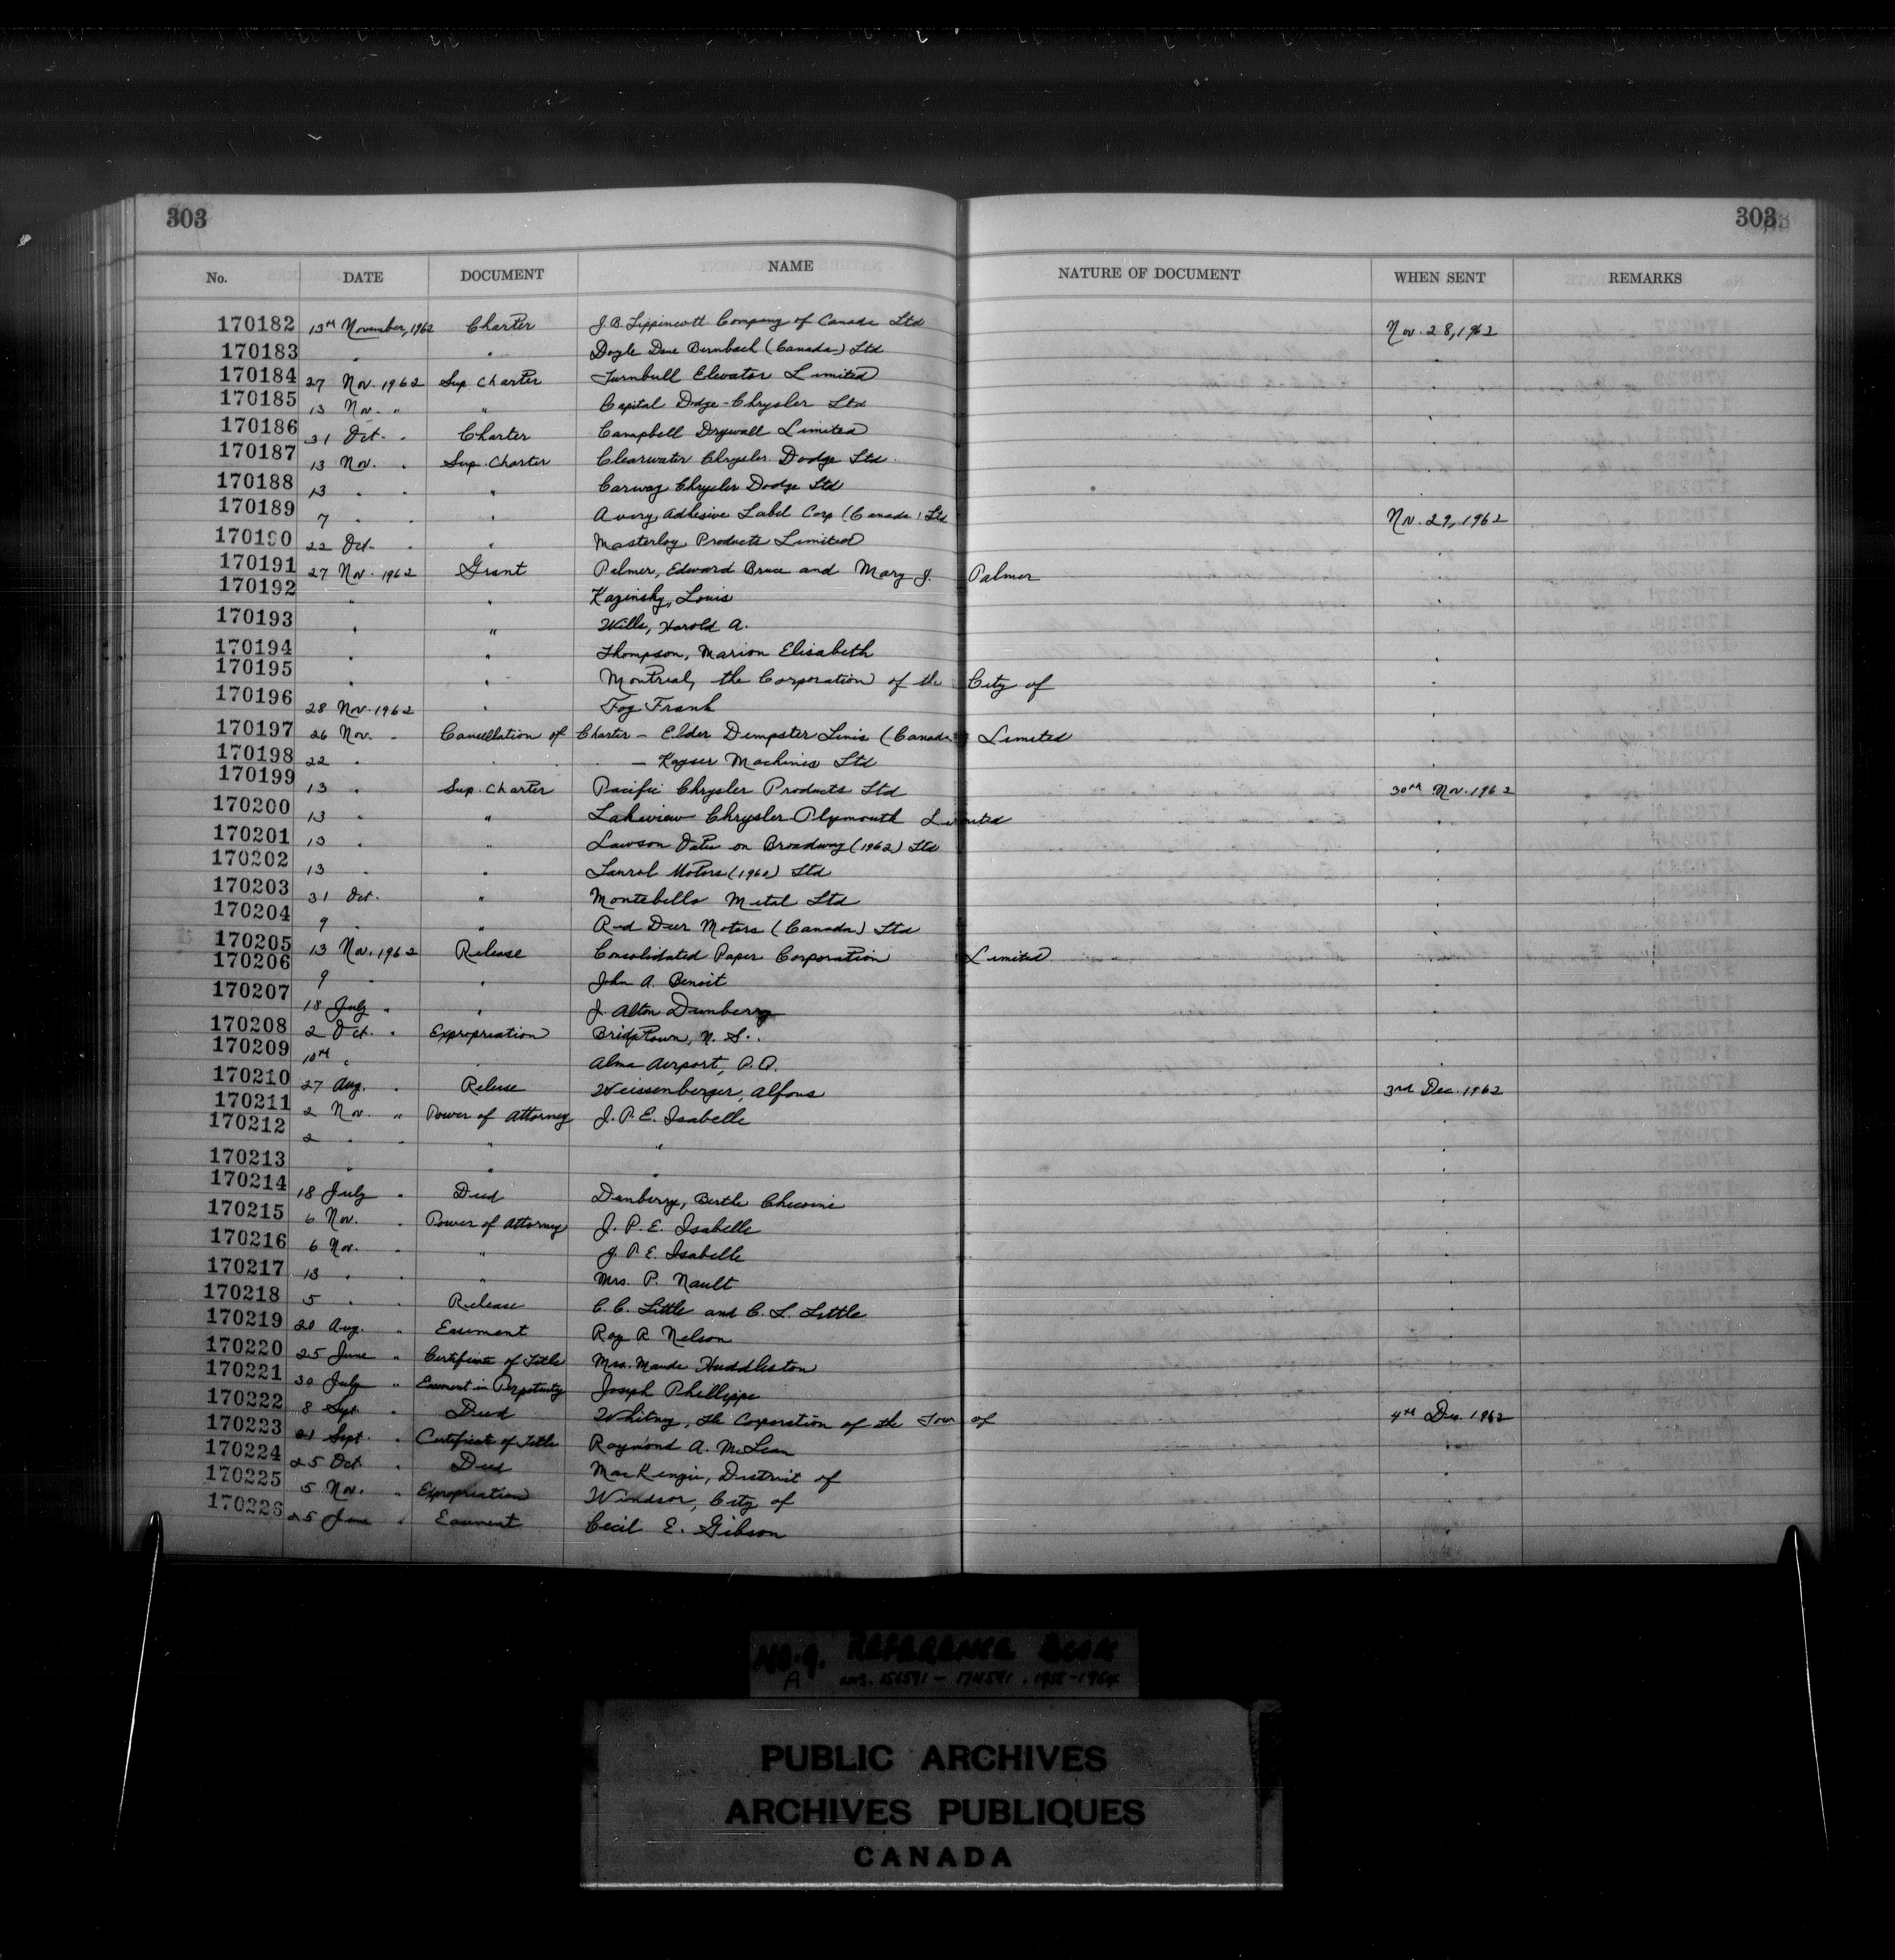 303 303
No. DATE DOCUMENT NAME NATURE OF DOCUMENT WHEN SENT REMARKS
170182 13th November, 1962 Charter J. B. Lippincott Company of Canada Ltd Nov. 28, 1962
170183 " " Doyle Dane Bernbach (Canada) Ltd "
170184 27 Nov. 1962 Sup. Charter Turnbull Elevator Limited "
170185 13 Nov. " " Capital Dodge-Chrysler Ltd "
170186 31 Oct. " Charter Campbell Drywall Limited "
170187 13 Nov. " Sup. Charter Clearwater Chrysler Dodge Ltd. "
170188 13 " " " Carway Chrysler Dodge Ltd "
170189 7 " " " Avery Adhesive Label Corp (Canada) Ltd Nov. 29, 1962
170190 22 Oct. " " Masterloy Products Limited "
170191 27 Nov. 1962 Grant Palmer, Edward Bruce and Mary J. Palmer "
170192 " " Kazinsky, Louis "
170193 " " Wills, Harold A. "
170194 " " Thompson, Marion Elisabeth "
170195 " " Montreal, the Corporation of the City of "
170196 28 Nov. 1962 " Foy Frank "
170197 26 Nov. " Cancellation of Charter - Elder Dempster Lines (Canada) Limited "
170198 22 " " " - Kayser Machines Ltd "
170199 13 " Sup. Charter Pacific Chrysler Products Ltd 30th Nov. 1962
170200 13 " " Lakeview Chrysler-Plymouth Limited "
170201 13 " " Lawson Oates on Broadway (1962) Ltd "
170202 13 " " Motors (1962) Ltd "
170203 31 Oct. " Montebello Metal Ltd "
170204 9 " " Red Deer Motors (Canada) Ltd "
170205 13 Nov. 1962 Release Consolidated Paper Corporation Limited "
170206 9 " " John A. Benoit "
170207 18 July " " J. Alton Dunberry "
170208 2 Oct. " Expropriation Bridgetown, N. S. "
170209 10th " " Alma Airport, P.Q. "
170210 27 Aug. " Release Weissenberger, Alfons 3rd Dec. 1962
170211 2 Nov. " Power of Attorney J. P. E. Isabelle "
170212 2 " " " " "
170213 " " " "
170214 18 July " Deed Dunberry, Berthe "
170215 6 Nov. " Power of Attorney J. P. E. Isabelle "
170216 6 Nov. " " J. P. E. Isabelle "
170217 13 " " " Mrs. P. Nault "
170218 5 " " Release C. C. Little and C. L. Little "
170219 20 Aug. " Easement Roy R Nelson "
170220 25 June " Certificate of Title Mrs. Maude Huddleston "
170221 30 July " Easement in Perpetuity Joseph Phillippe "
170222 8 Sept. " Deed Whitney, the Corporation of the Town of 4th Dec. 1962
170223 21 Sept. " Certificate of Title Raymond A. McLean "
170224 25 Oct. " Deed MacKenzie, District of "
170225 5 Nov. " Expropriation Windsor, City of "
170226 25 June " Easement Cecil E. Gibson
No. 9. REFERENCE BOOK
A nos. 156591 - 174591. 1958-1964
PUBLIC ARCHIVES
ARCHIVES PUBLIQUES
CANADA